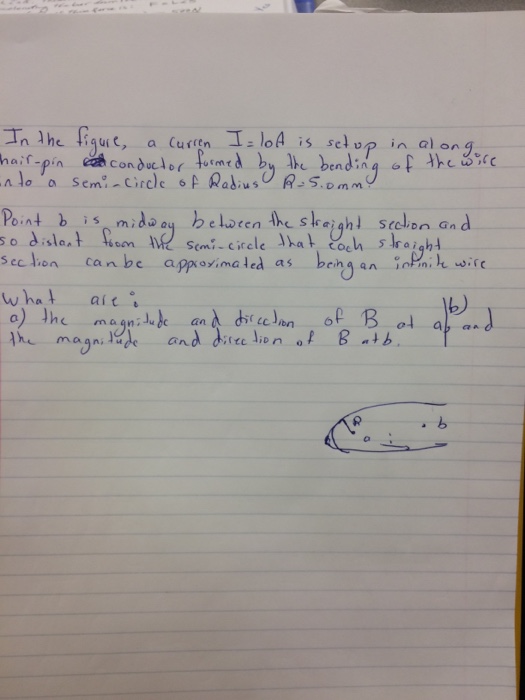 In the figure, a curren I = 10A is setup in along
hair-pin conductor formed by the bending of the wire
nto a semi-circle of Radius R=5.0mm.
Point b is midway between the straight section and
so distant from the semi-circle that each straight
section can be approximated as being an infinite wire
what are:
a) the magnitude and direction of B at a and b)
the magnitude and direction of B at b.
R
a
i
b